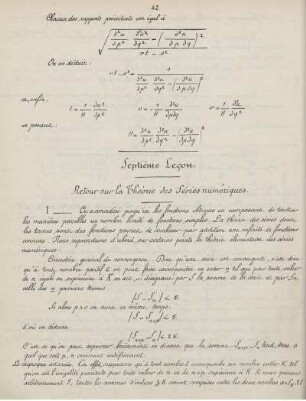 42
Chacun des rapports précédents est égal à
√( (∂²u/∂p² ∂²u/∂q² − (∂²u/∂p ∂q)²) / (rt − s²) )
On en déduit :
rt − s² = 1 / (∂²u/∂p² ∂²u/∂q² − (∂²u/∂p∂q)²)
et, enfin,
t = 1/H ∂²u/∂p² s = − 1/H ∂²u/∂p∂q r = 1/H ∂²u/∂q²
en posant
H = ∂²u/∂p² ∂²u/∂q² − (∂²u/∂p∂q)²
Septième Leçon.
Retour sur la Théorie des Séries numériques.
1 On a considéré jusqu'ici les fonctions en composant de toutes
les manières possibles un nombre limité de fonctions simples. La théorie des séries dont
les termes sont des fonctions permet de combiner par addition une infinité de fonctions
connues. Nous reprendrons d'abord par certains points la théorie élémentaire des séries
numériques.
Caractère général de convergence. Dire qu'une série est convergente, c'est dire
qu'à tout nombre positif ε on peut faire correspondre un entier q tel que par toute valeur
de n égale ou supérieure à K, on ait, en désignant par S la somme de la série et par Sₙ
celle des n premiers termes,
|S − Sₙ| < ε
Si alors p > 0 on aura en même temps,
|S − Sₙ₊ₚ| < ε
d'où on déduira
|Sₙ₊ₚ − Sₙ| < 2ε
C'est ce qu'on peut exprimer en disant que la somme Sₙ₊ₚ − Sₙ tend vers 0
quel que soit p, n croissant indéfiniment.
La réciproque est vraie. En effet, supposons qu'à tout nombre ε corresponde un nombre entier K tel
qu'on ait l'inégalité précédente pour toute valeur de n et de n+p supérieure à K. Si nous prenons